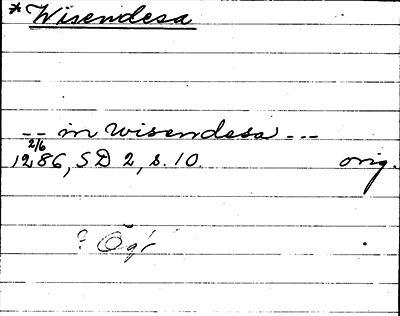 *Wisendesa
-- in wisendesa ---
2/6
1286, SD 2, s. 10. orig.
? Ög?